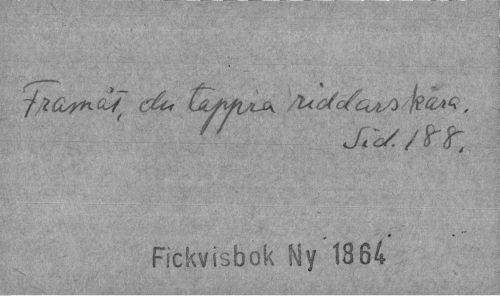 Framåt, du tappra riddarskara.
Sid. 188.
Fickvisbok Ny 1864